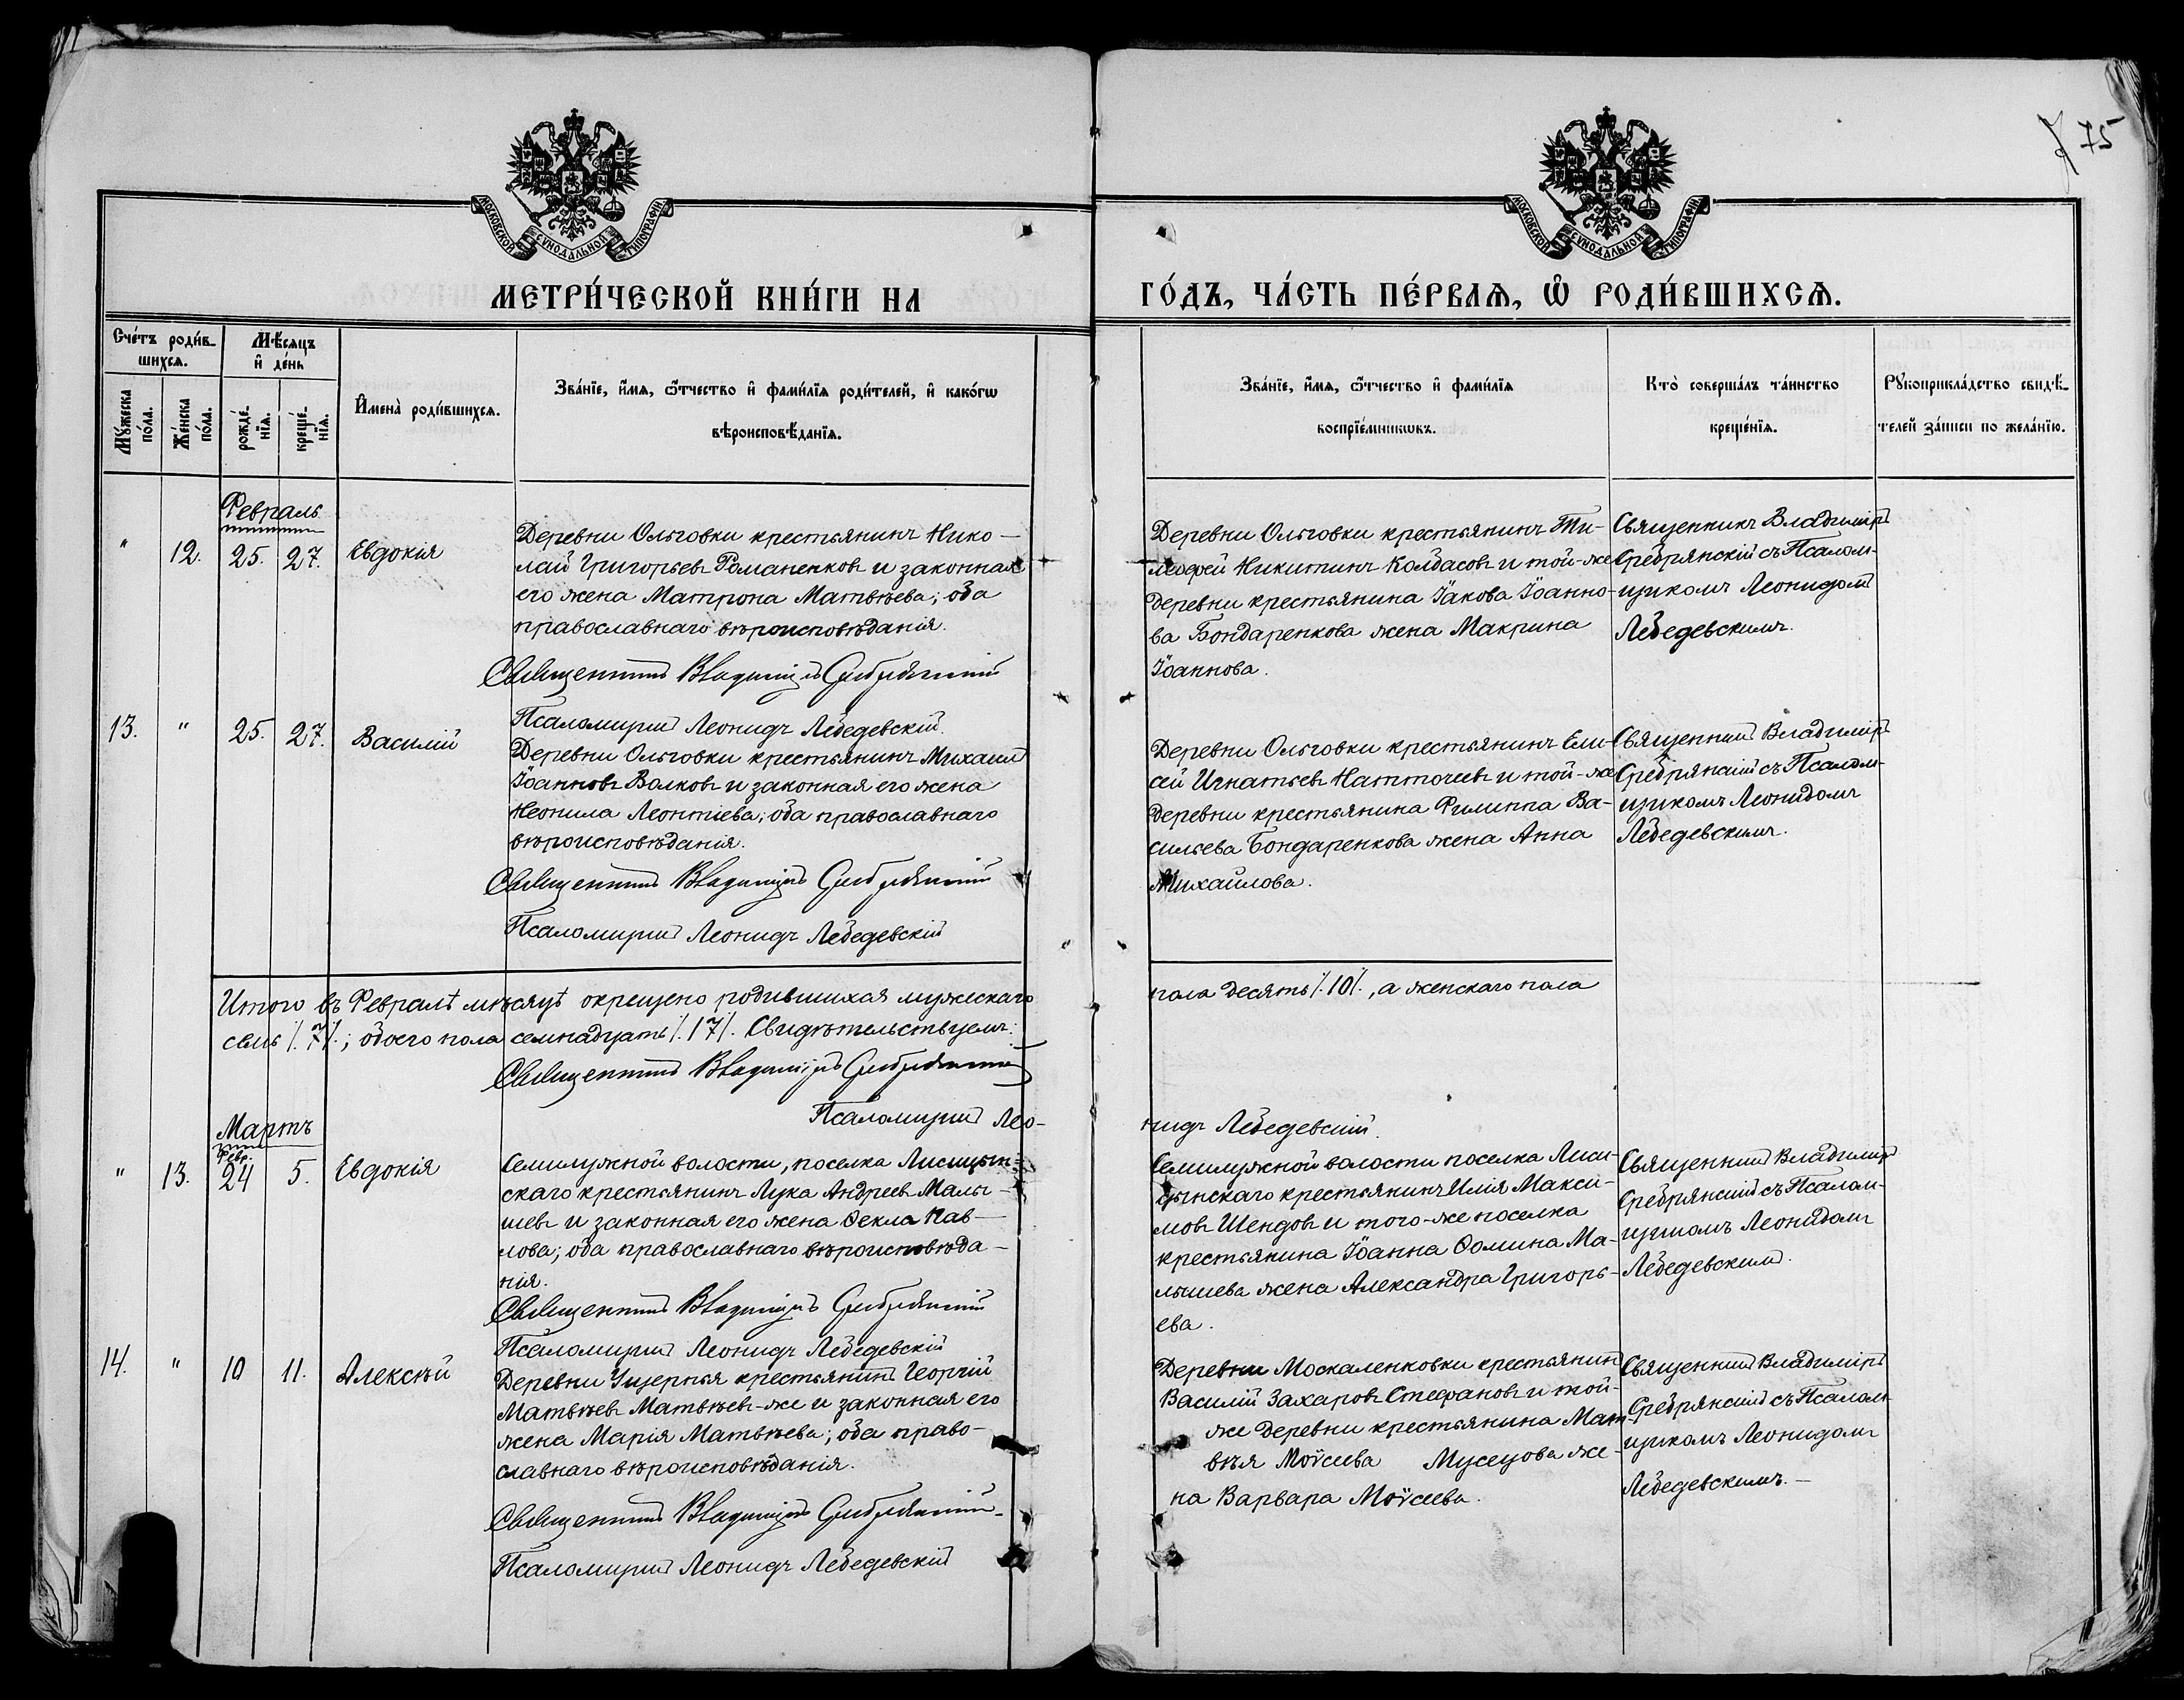 75
МОСКОВСКОЙ СУНОДАЛЬНОЙ ТИПОГРАФІИ
МОСКОВСКОЙ СУНОДАЛЬНОЙ ТИПОГРАФІИ
МЕТРИ́ЧЕСКОЙ КНИ́ГИ НА
ГО́ДЪ, ЧА́СТЬ ПЕ́РВАѦ, Ѡ РОДИ́ВШИХСѦ.
Сче́тъ роди́в-
шихсѧ.
Мѣсѧцъ
и҆ де́нь
Мꙋ́жеска
по́ла.
Же́нска
по́ла.
рожде́-
нїѧ.
креще́-
нїѧ.
И҆мена̀ роди́вшихсѧ.
Зва́нїе, и҆́мѧ, ѻ҆́тчество и҆ фами́лїѧ роди́телей, и҆ како́гѡ
вѣроисповѣ́данїѧ.
Зва́нїе, и҆́мѧ, ѻ҆́тчество и҆ фами́лїѧ
воспрїе́мникѡвъ.
Кто̀ соверша́лъ та́инство
креще́нїѧ.
Рꙋкоприкла́дство свидѣ́-
телей за́писи по жела́нїю.
Февраль
" 12. 25. 27. Евдокія
Деревни Ольговки крестьянинъ Нико-
лай Григорьевъ Романенковъ и законная
его жена Матрона Матвѣева; оба
православнаго вѣроисповѣданія.
Священникъ Владиміръ Сребрянскій
Псаломщикъ Леонидъ Лебедевскій.
Деревни Ольговки крестьянинъ Ти-
мофей Никитинъ Колбасовъ и той-же
деревни крестьянина Іакова Іоанно-
ва Бондаренкова жена Макрина
Іоаннова.
Священникъ Владиміръ
Сребрянскій съ Псалом-
щикомъ Леонидомъ
Лебедевскимъ.
13. " 25. 27. Василій
Деревни Ольговки крестьянинъ Михаилъ
Іоанновъ Волковъ и законная его жена
Неонила Леонтіева; оба православнаго
вѣроисповѣданія.
Священникъ Владиміръ Сребрянскій
Псаломщикъ Леонидъ Лебедевскій
Деревни Ольговки крестьянинъ Ели-
сей Игнатьевъ и той-же
деревни крестьянина Филиппа Ва-
сильева Бондаренкова жена Анна
Михайлова.
Священникъ Владиміръ
Сребрянскій съ Псалом-
щикомъ Леонидомъ
Лебедевскимъ.
Итого въ Февралѣ мѣсяцѣ окрещено родившихся мужескаго пола десять /.10/., а женскаго пола
семь /.7/.; обоего пола семнадцать /.17/. Свидѣтельствуемъ:
Священникъ Владиміръ Сребрянскій
Псаломщикъ Леонидъ Лебедевскій.
Мартъ
Февр.
" 13. 24 5. Евдокія
Семилужной волости, поселка Лисицын-
скаго крестьянинъ Лука Андреевъ Малы-
шевъ и законная его жена Ѳекла Пав-
лова; оба православнаго вѣроисповѣда-
нія.
Священникъ Владиміръ Сребрянскій
Псаломщикъ Леонидъ Лебедевскій
Семилужной волости поселка Лиси-
цынскаго крестьянинъ Илія Макси-
мовъ Шендовъ и того-же поселка
крестьянина Іоанна Ѳомина Ма-
лышева жена Александра Григорь-
ева.
Священникъ Владиміръ
Сребрянскій съ Псалом-
щикомъ Леонидомъ
Лебедевскимъ.
14. " 10 11. Алексѣй
Деревни крестьянинъ Георгій
Матвѣевъ Матвѣевъ-же и законная его
жена Марія Матвѣева; оба право-
славнаго вѣроисповѣданія.
Священникъ Владиміръ Сребрянскій
Псаломщикъ Леонидъ Лебедевскій
Деревни Москаленковки крестьянинъ
Василій Захаровъ Стефановъ и той-
же деревни крестьянина Мат-
вѣя Моѵсеева Мусецова же-
на Варвара Моѵсеева.
Священникъ Владиміръ
Сребрянскій съ Псалом-
щикомъ Леонидомъ
Лебедевскимъ.-